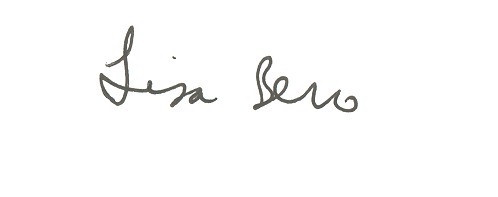 Lisa Bero